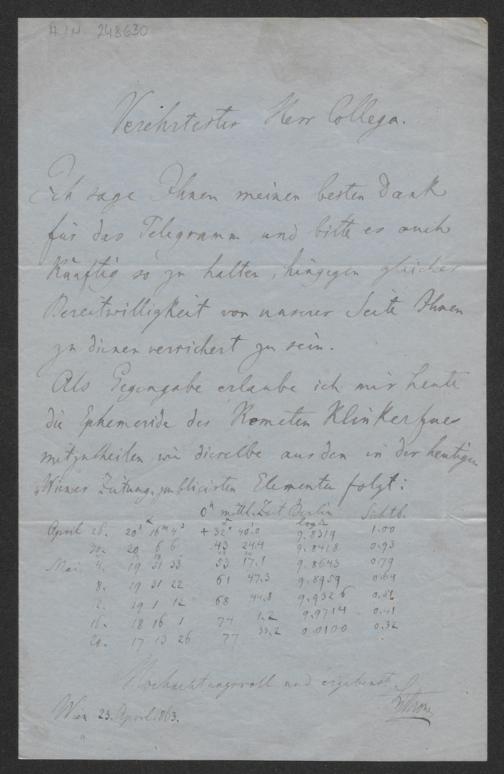 A/N 248630
Verehrtester Herr Collega.
Ich sage Ihnen meinen besten Dank
für das Telegramm und bitte es auch
künftig so zu halten, hingegen gleicher
Bereitwilligkeit von unserer Seite Ihnen
zu dienen versichert zu sein.
Als Gegengabe erlaube ich mir heute
die Ephemeride des Kometen Klinkerfues
mitzutheilen wie dieselbe aus den in der heutigen
Wiener Zeitung publicirten Elementen folgt:
0h mittl. Zeit Berlin
log Δ Lichtst.
April 26. 20h 16m 4s + 32° 40.0 9.8319 1.00
30. 20 6 6 43 24.4 9.8418 0.93
Mai 4. 19 51 33 53 17.1 9.8643 0.79
8. 19 31 22 61 47.3 9.8959 0.64
12. 19 1 12 68 44.8 9.9326 0.51
16. 18 16 1 74 1.2 9.9714 0.41
20. 17 13 26 77 33.2 0.0100 0.32
Hochachtungsvoll und ergebenst
Wien 23. April 1863.